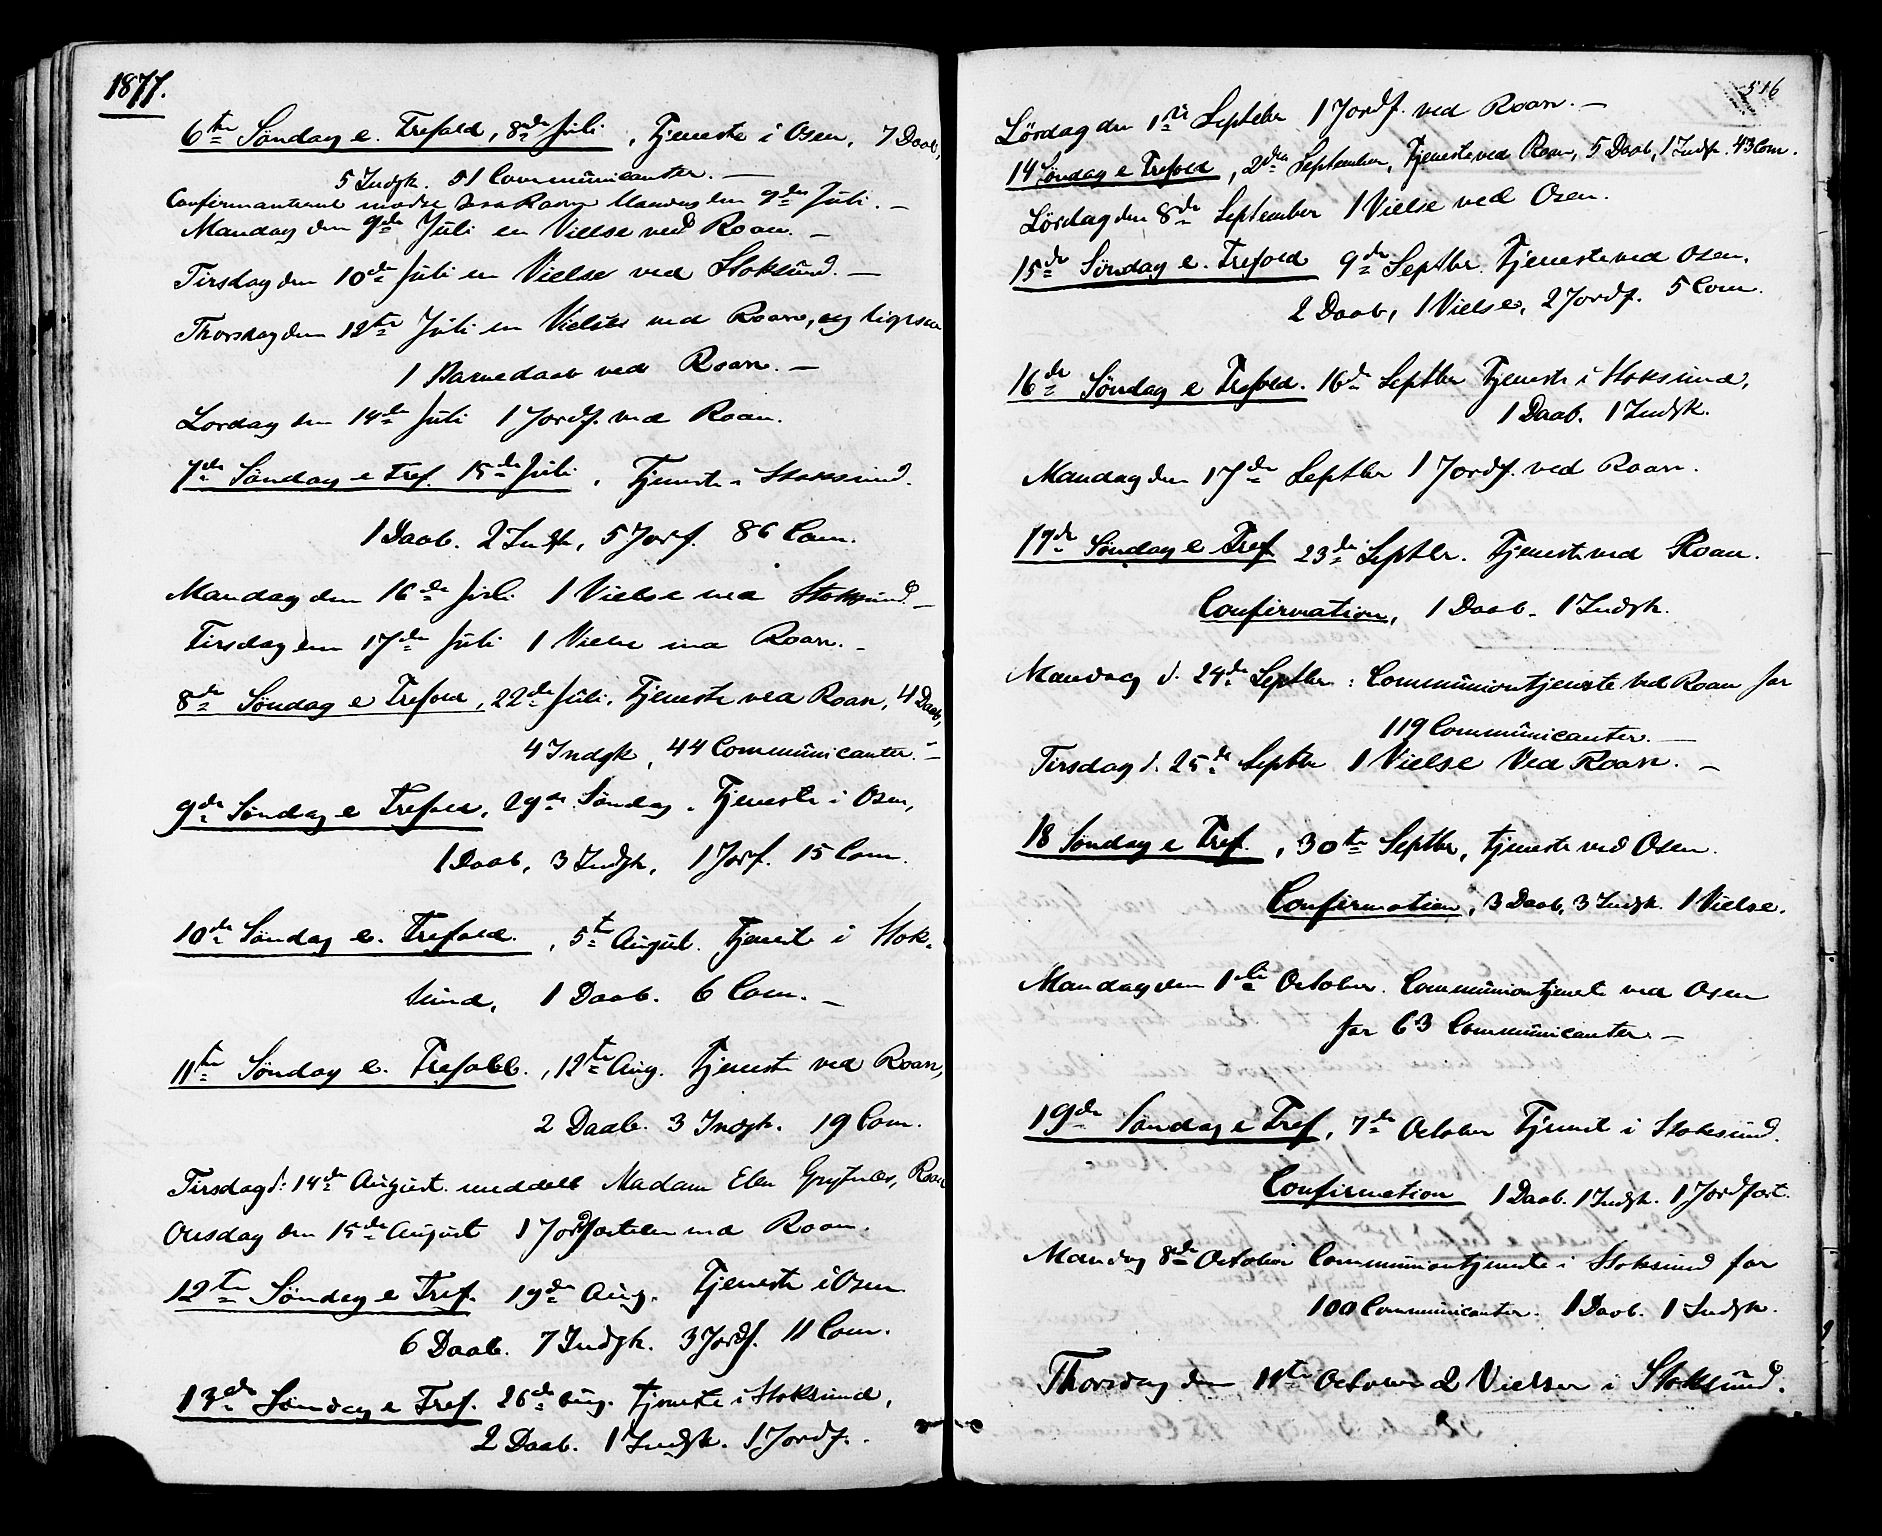 1877.
6te Søndag e. Trefold, 8de Juli, Tjeneste i Osen, 7 Daab,
5 Indgk. 51 Communicanter. —
Confirmanterne mødte Mandag den 9de Juli. —
Mandag den 9de Juli en Vielse ved Roan. —
Tirsdag den 10de Juli en Vielse ved Stoksund. —
Thorsdag den 12te Juli en Vielse ved Roan, og ligesaa
1 Barnedaab ved Roan. —
Lørdag den 14de Juli 1 Jordf. ved Roan.
7de Søndag e Tref. 15de Juli, Tjeneste i Stoksund.
1 Daab. 2 Indgk, 5 Jorf. 86 Com.
Mandag den 16de Juli 1 Vielse ved Stoksund. —
Tirsdag den 17de Juli 1 Vielse ved Roan. —
8de Søndag e Trefold, 22de Juli, Tjeneste ved Roan, 4 Daab,
4 Indgk, 44 Communicanter. —
9de Søndag e Trefold, 29de Søndag. Tjeneste i Osen,
1 Daab, 3 Indgk, 1 Jorf. 15 Com.
10de Søndag e. Trefold., 5te August. Tjeneste i Stok-
sund, 1 Daab. 6 Com. —
11te Søndag e. Trefold., 12te Aug. Tjeneste ved Roan,
2 Daab. 3 Indgk. 19 Com.
Tirsdag d. 14de August meddelt Madam Elen Roan
Onsdag den 15de August 1 Jordfæstelse ved Roan.
12te Søndag e Tref. 19de Aug. Tjeneste i Osen
6 Daab. 7 Indgk. 3 Jordf. 11 Com.
13de Søndag e Tref. 26de Aug. Tjeneste i Stoksund,
2 Daab. 1 Indgk. 1 Jordf.
516
Lørdag den 1ste Septbr 1 Jordf. ved Roan. —
14 Søndag e Trefold, 2den September, Tjeneste ved Roan, 5 Daab, 1 Indgk. 43 Com.
Lørdag den 8de September 1 Vielse ved Osen.
15de Søndag e. Trefold 9de Septbr. Tjeneste ved Osen,
2 Daab, 1 Vielse, 2 Jordf. 5 Com.
16de Søndag e Trefold. 16de Septbr Tjeneste i Stoksund,
1 Daab. 1 Indgk.
Mandag den 17de Septbr 1 Jordf. ved Roan.
17de Søndag e Tref 23de Septbr. Tjeneste ved Roan.
Confirmation, 1 Daab. 1 Indgk.
Mandag d. 24de Septbr: Communiontjeneste ved Roan for
119 Communicanter. —
Tirsdag d. 25de Septbr 1 Vielse ved Roan. —
18 Søndag e Tref., 30te Septbr, Tjeneste ved Osen.
Confirmation, 3 Daab, 3 Indgk. 1 Vielse.
Mandag den 1ste October. Communiontjeneste ved Osen
for 63 Communicanter. —
19de Søndag e Tref, 7de October Tjeneste i Stoksund.
Confirmation 1 Daab. 1 Indgk. 1 Jordfæst.
Mandag 8de October Communiontjeneste i Stoksund for
100 Communicanter. 1 Daab. 1 Indgk.
Thorsdag den 11te October 2 Vielser i Stoksund.